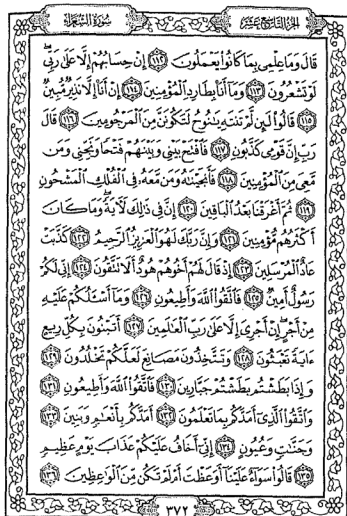 الجزء التاسع عشر سورة الشعراء
قَالَ وَمَا عِلْمِى بِمَا كَانُوا۟ يَعْمَلُونَ ١١٢ إِنْ حِسَابُهُمْ إِلَّا عَلَىٰ رَبِّى
لَوْ تَشْعُرُونَ ١١٣ وَمَآ أَنَا۠ بِطَارِدِ ٱلْمُؤْمِنِينَ ١١٤ إِنْ أَنَا۠ إِلَّا نَذِيرٌ مُّبِينٌ
١١٥ قَالُوا۟ لَئِن لَّمْ تَنتَهِ يَٰنُوحُ لَتَكُونَنَّ مِنَ ٱلْمَرْجُومِينَ ١١٦ قَالَ
رَبِّ إِنَّ قَوْمِى كَذَّبُونِ ١١٧ فَٱفْتَحْ بَيْنِى وَبَيْنَهُمْ فَتْحًا وَنَجِّنِى وَمَن
مَّعِىَ مِنَ ٱلْمُؤْمِنِينَ ١١٨ فَأَنجَيْنَٰهُ وَمَن مَّعَهُۥ فِى ٱلْفُلْكِ ٱلْمَشْحُونِ
١١٩ ثُمَّ أَغْرَقْنَا بَعْدُ ٱلْبَاقِينَ ١٢٠ إِنَّ فِى ذَٰلِكَ لَءَايَةً وَمَا كَانَ
أَكْثَرُهُم مُّؤْمِنِينَ ١٢١ وَإِنَّ رَبَّكَ لَهُوَ ٱلْعَزِيزُ ٱلرَّحِيمُ ١٢٢ كَذَّبَتْ
عَادٌ ٱلْمُرْسَلِينَ ١٢٣ إِذْ قَالَ لَهُمْ أَخُوهُمْ هُودٌ أَلَا تَتَّقُونَ ١٢٤ إِنِّى لَكُمْ
رَسُولٌ أَمِينٌ ١٢٥ فَٱتَّقُوا۟ ٱللَّهَ وَأَطِيعُونِ ١٢٦ وَمَآ أَسْـَٔلُكُمْ عَلَيْهِ
مِنْ أَجْرٍ إِنْ أَجْرِىَ إِلَّا عَلَىٰ رَبِّ ٱلْعَٰلَمِينَ ١٢٧ أَتَبْنُونَ بِكُلِّ رِيعٍ
ءَايَةً تَعْبَثُونَ ١٢٨ وَتَتَّخِذُونَ مَصَانِعَ لَعَلَّكُمْ تَخْلُدُونَ ١٢٩
وَإِذَا بَطَشْتُم بَطَشْتُمْ جَبَّارِينَ ١٣٠ فَٱتَّقُوا۟ ٱللَّهَ وَأَطِيعُونِ ١٣١
وَٱتَّقُوا۟ ٱلَّذِىٓ أَمَدَّكُم بِمَا تَعْلَمُونَ ١٣٢ أَمَدَّكُم بِأَنْعَٰمٍ وَبَنِينَ ١٣٣
وَجَنَّٰتٍ وَعُيُونٍ ١٣٤ إِنِّىٓ أَخَافُ عَلَيْكُمْ عَذَابَ يَوْمٍ عَظِيمٍ
١٣٥ قَالُوا۟ سَوَآءٌ عَلَيْنَآ أَوَعَظْتَ أَمْ لَمْ تَكُن مِّنَ ٱلْوَٰعِظِينَ ١٣٦
٣٧٢